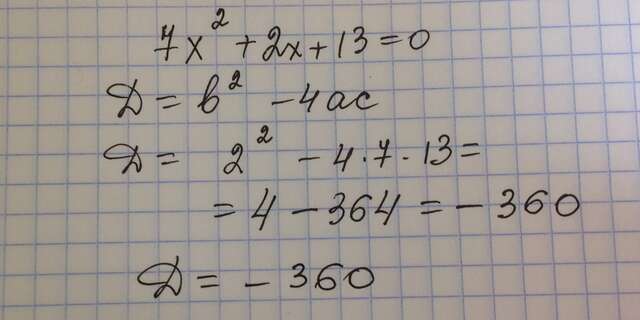 7x² + 2x + 13 = 0
D = b² - 4ac
D = 2² - 4·7·13 =
= 4 - 364 = - 360
D = - 360